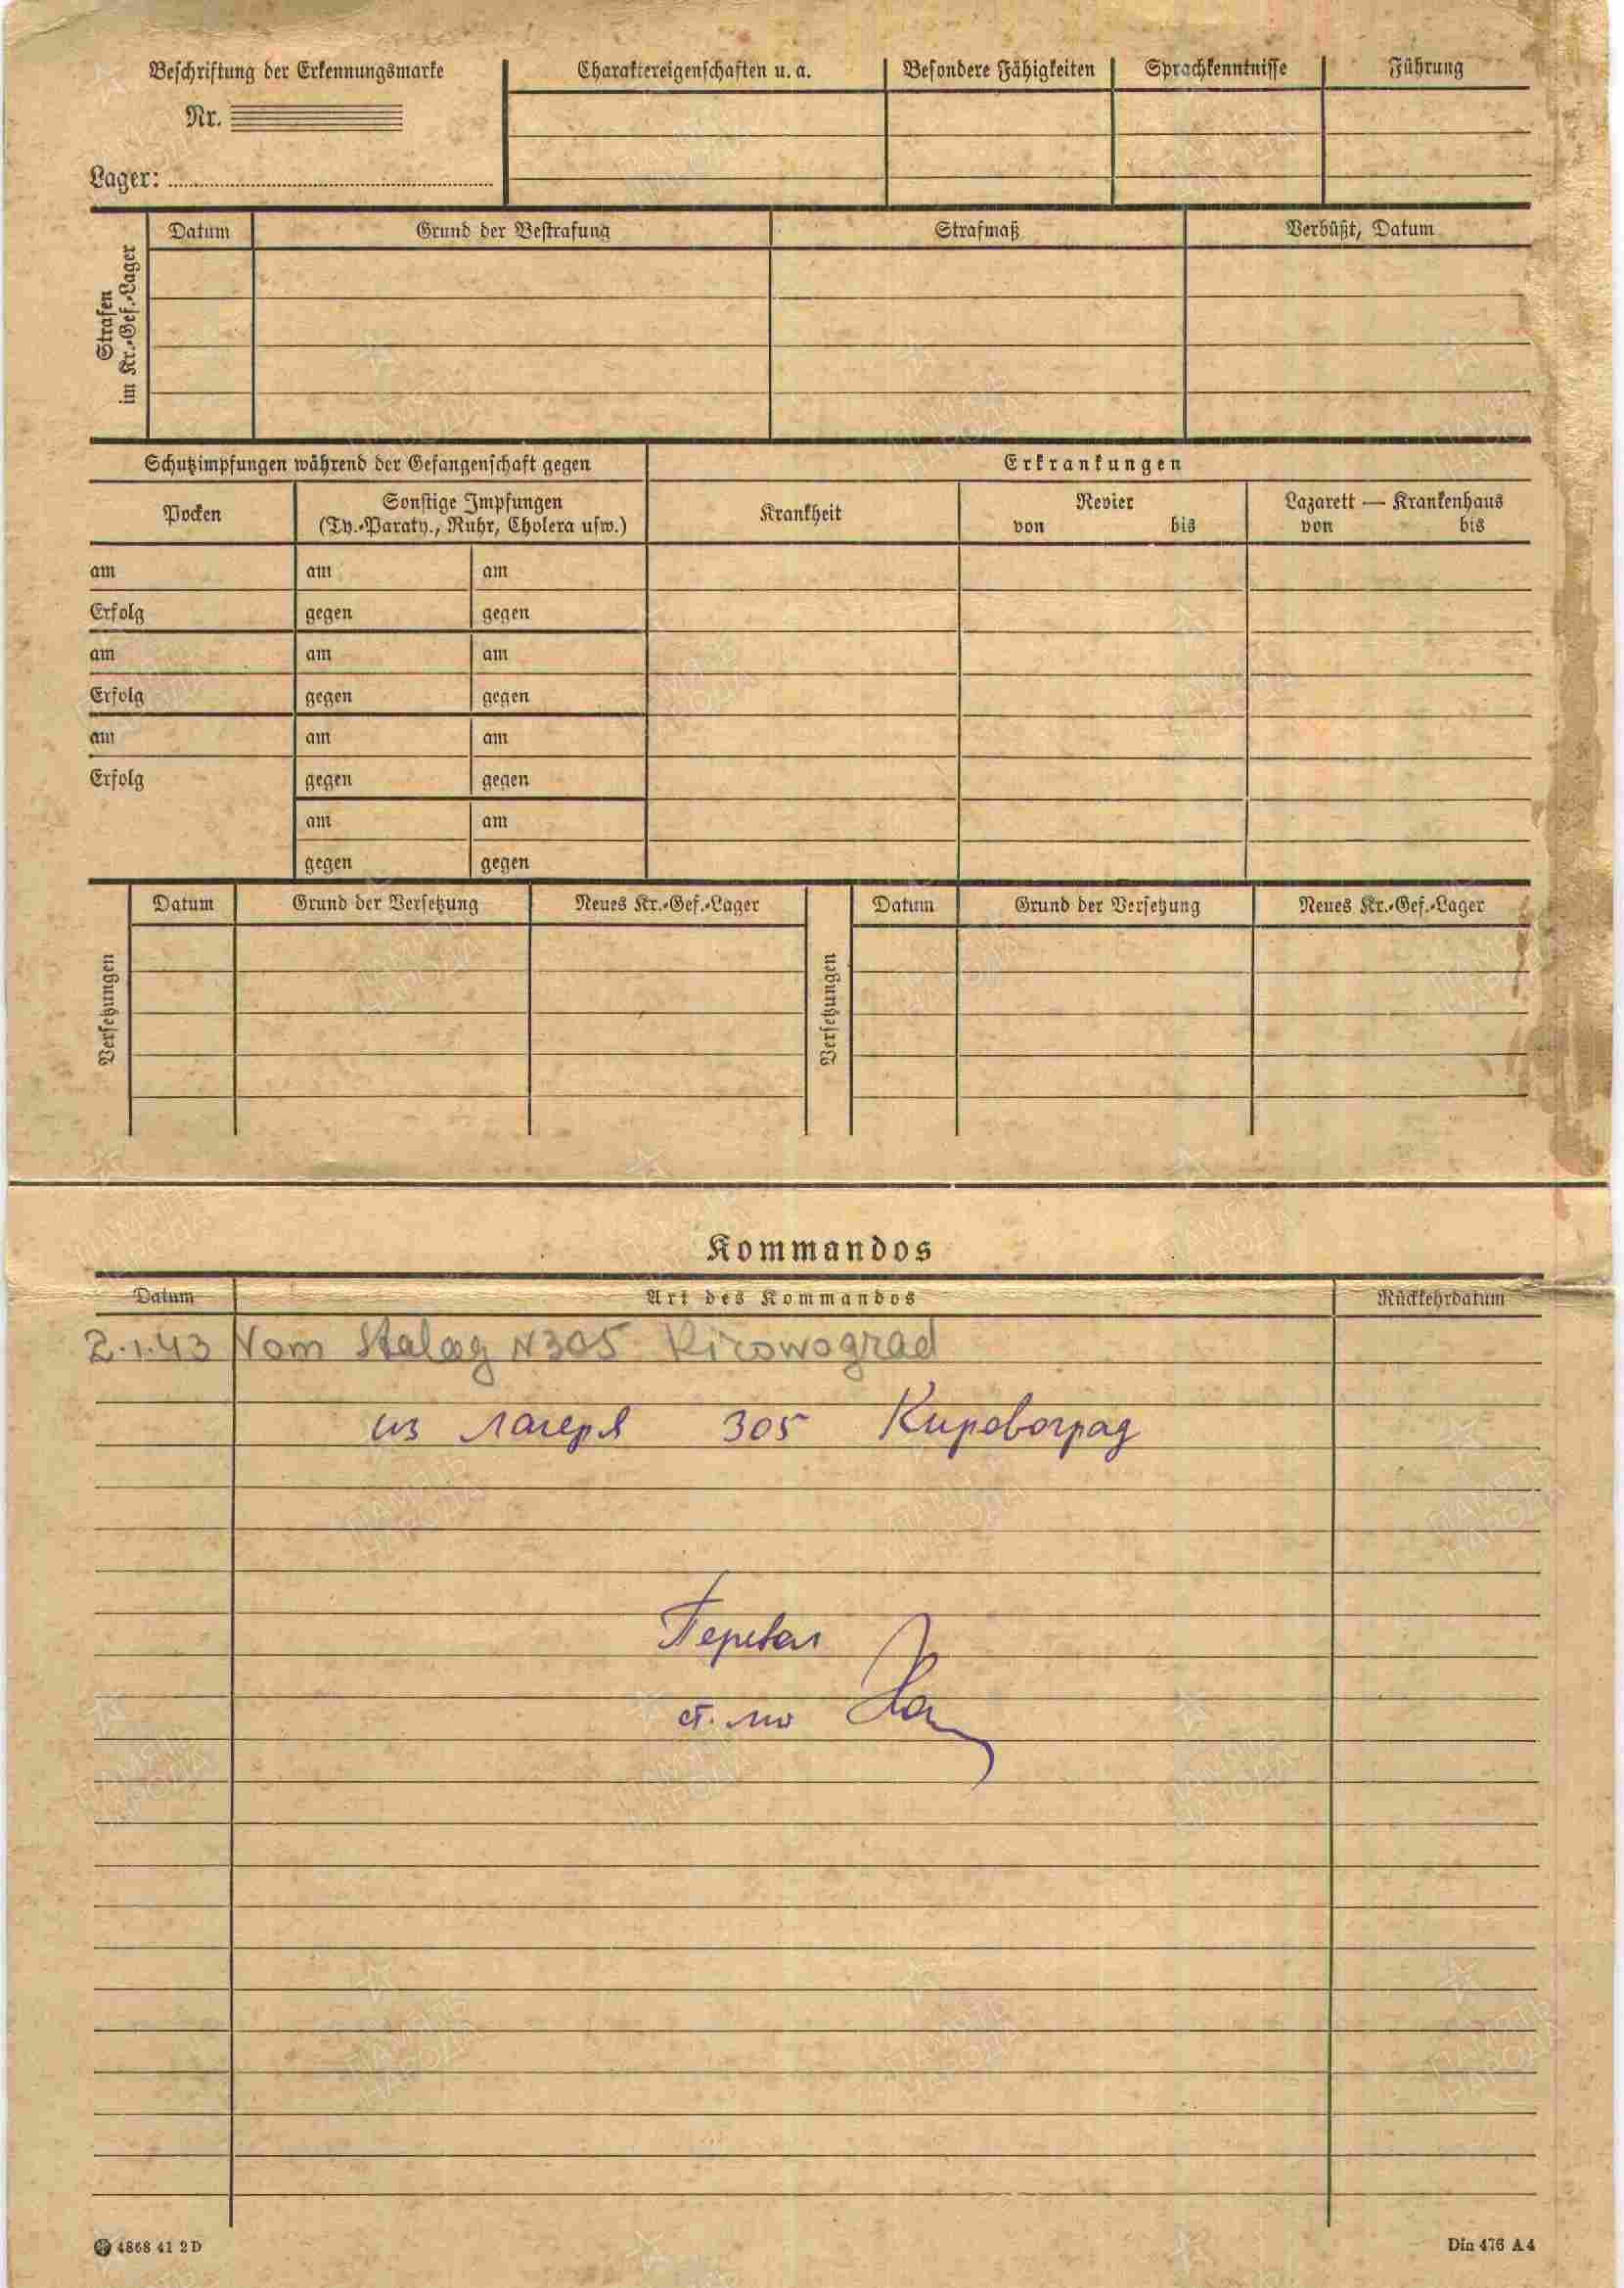 Beschriftung der Erkennungsmarke
Nr.
Lager:
Charaktereigenschaften u. a.
Besondere Fähigkeiten
Sprachkenntnisse
Führung
Strafen
im Kr.-Gef.-Lager
Datum
Grund der Bestrafung
Strafmaß
Verbüßt, Datum
Schutzimpfungen während der Gefangenschaft gegen
Erkrankungen
Pocken
Sonstige Impfungen
(Ty.-Paraty., Ruhr, Cholera usw.)
Krankheit
Revier
von bis
Lazarett — Krankenhaus
von bis
am am am
Erfolg gegen gegen
am am am
Erfolg gegen gegen
am am am
Erfolg gegen gegen
am am
gegen gegen
Versetzungen
Datum Grund der Versetzung Neues Kr.-Gef.-Lager
Versetzungen
Datum Grund der Versetzung Neues Kr.-Gef.-Lager
Kommandos
Datum Art des Kommandos Rückkehrdatum
2.1.43 Vom Stalag N305 Kirowograd
из лагеря 305 Кировоград
Перевел
ст. л-т
4868 41 2 D
Din 476 A 4
ПАМЯТЬ
НАРОДА